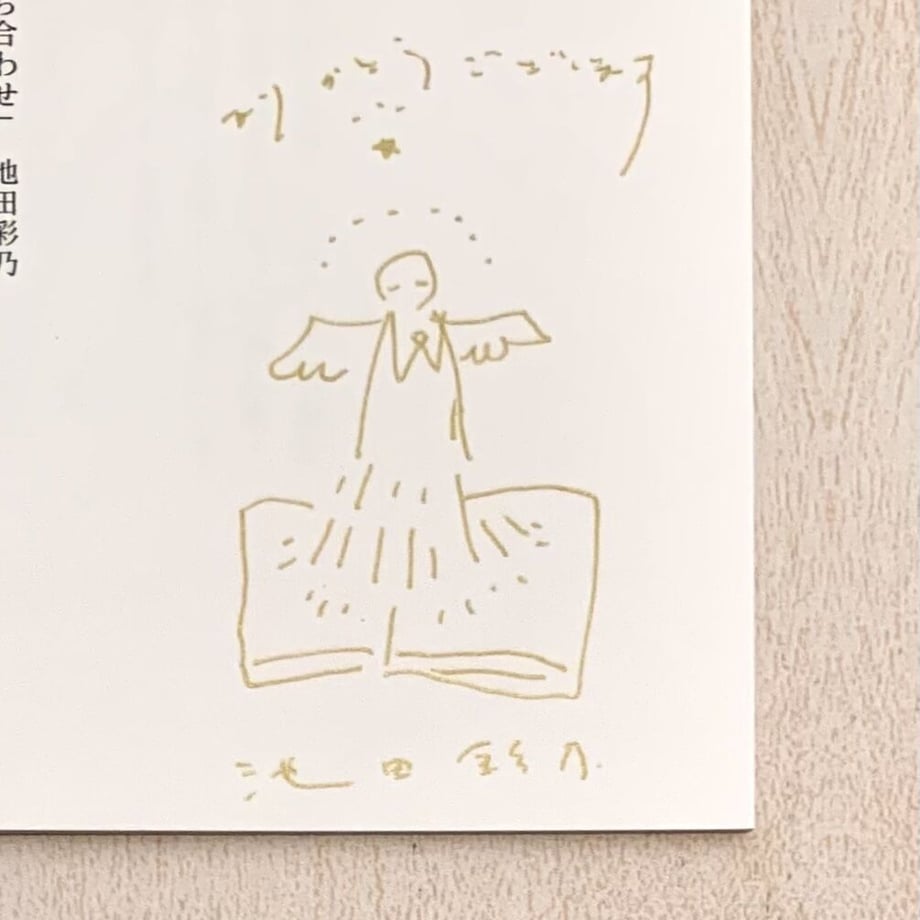 ち合わせ」 池田彩乃
ありがとうございます
池田彩乃